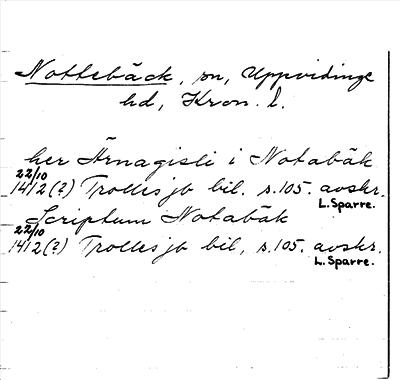 Nottebäck, sn, Uppvidinge
hd, Kron. l.
her Ärnagisli i Notabäk
22/10
1412(?) Trolles jb bil. s. 105. avskr.
L. Sparre.
Scriptum Notabäk
22/10
1412(?) Trolles jb bil, s. 105. avskr.
L. Sparre.